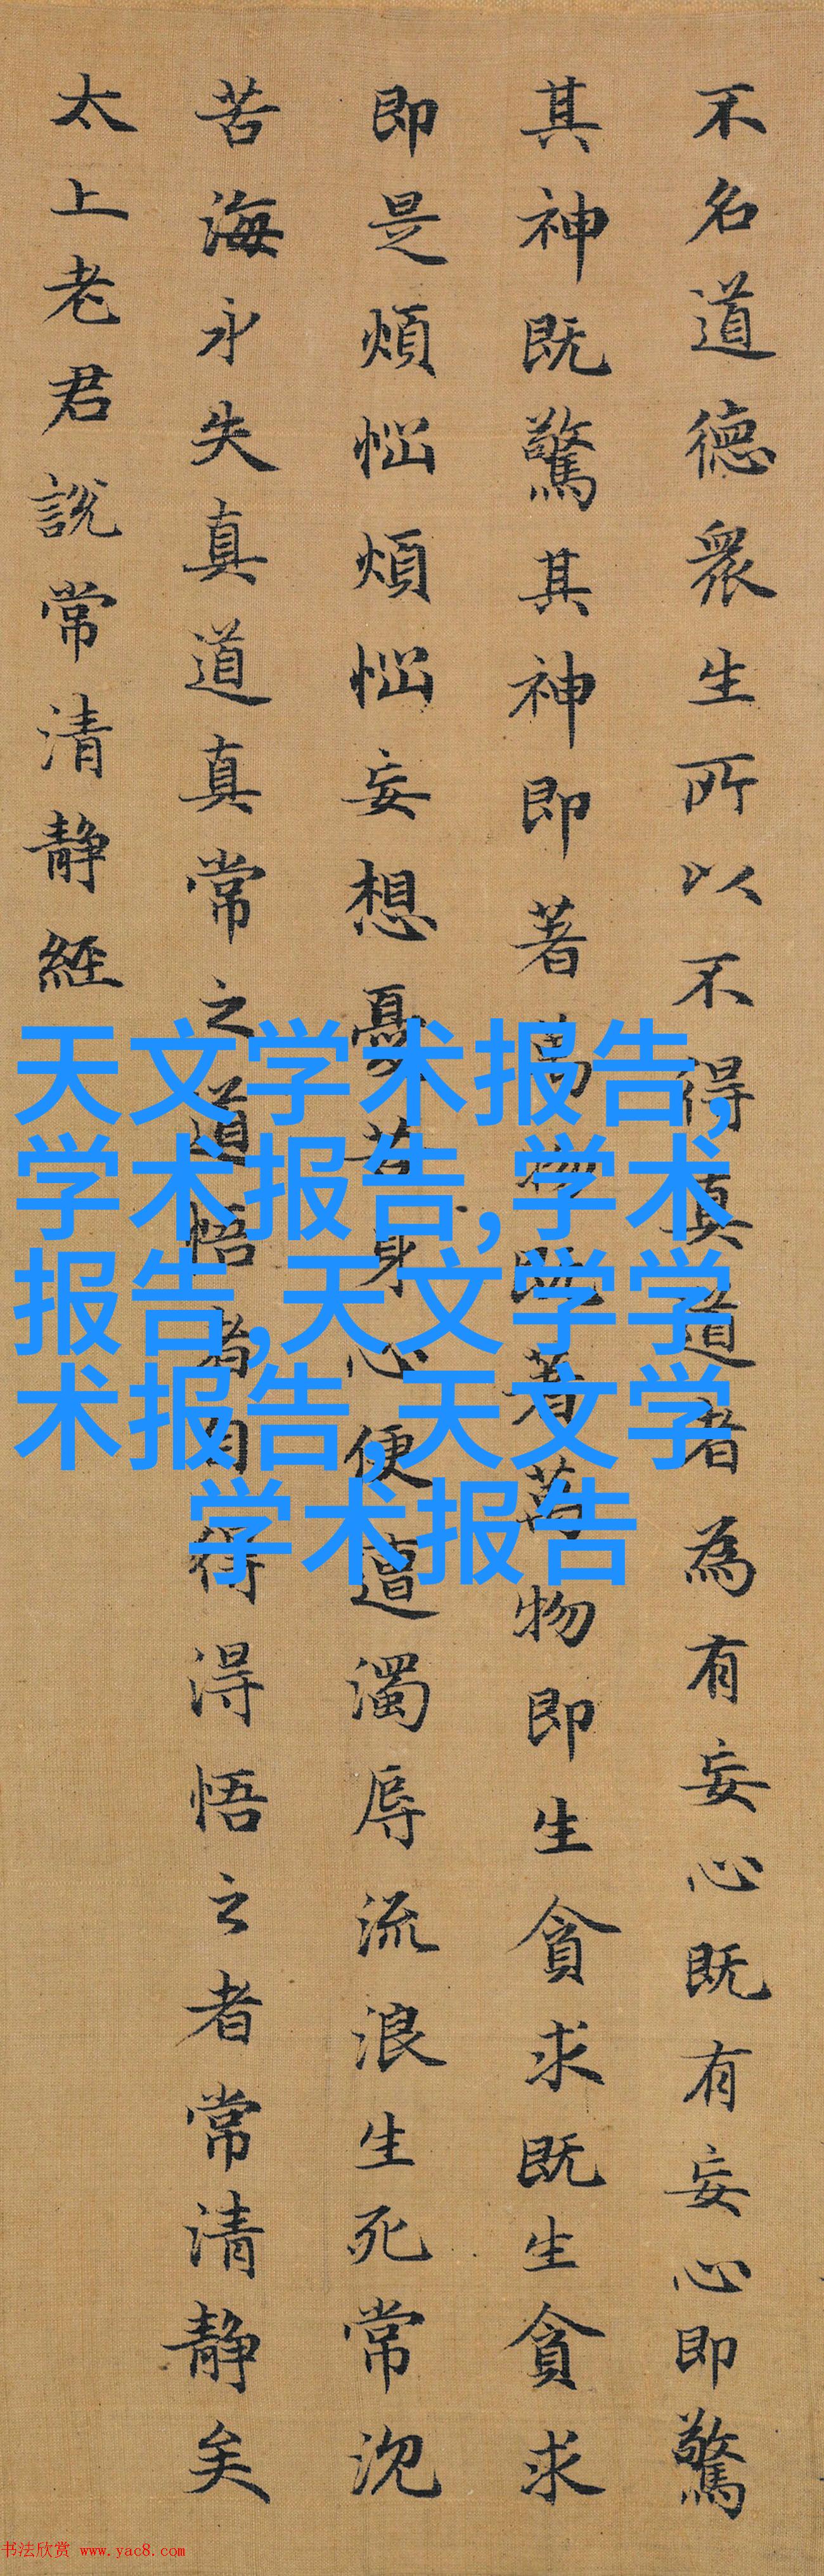 不名道德衆生所以不得真道者為有妄心既有妄心即驚
其神既驚其神即著萬物既著萬物即生貪求既生貪求
即是煩惱煩惱妄想憂苦身心便遭濁辱流浪生死常沉
苦海永失真道真常之道悟者自得得悟之者常清靜矣
太上老君說常清靜經
天文学术报告,
学术报告,学术
报告,天文学学
术报告,天文学
学术报告
书法欣赏 www.yac8.com